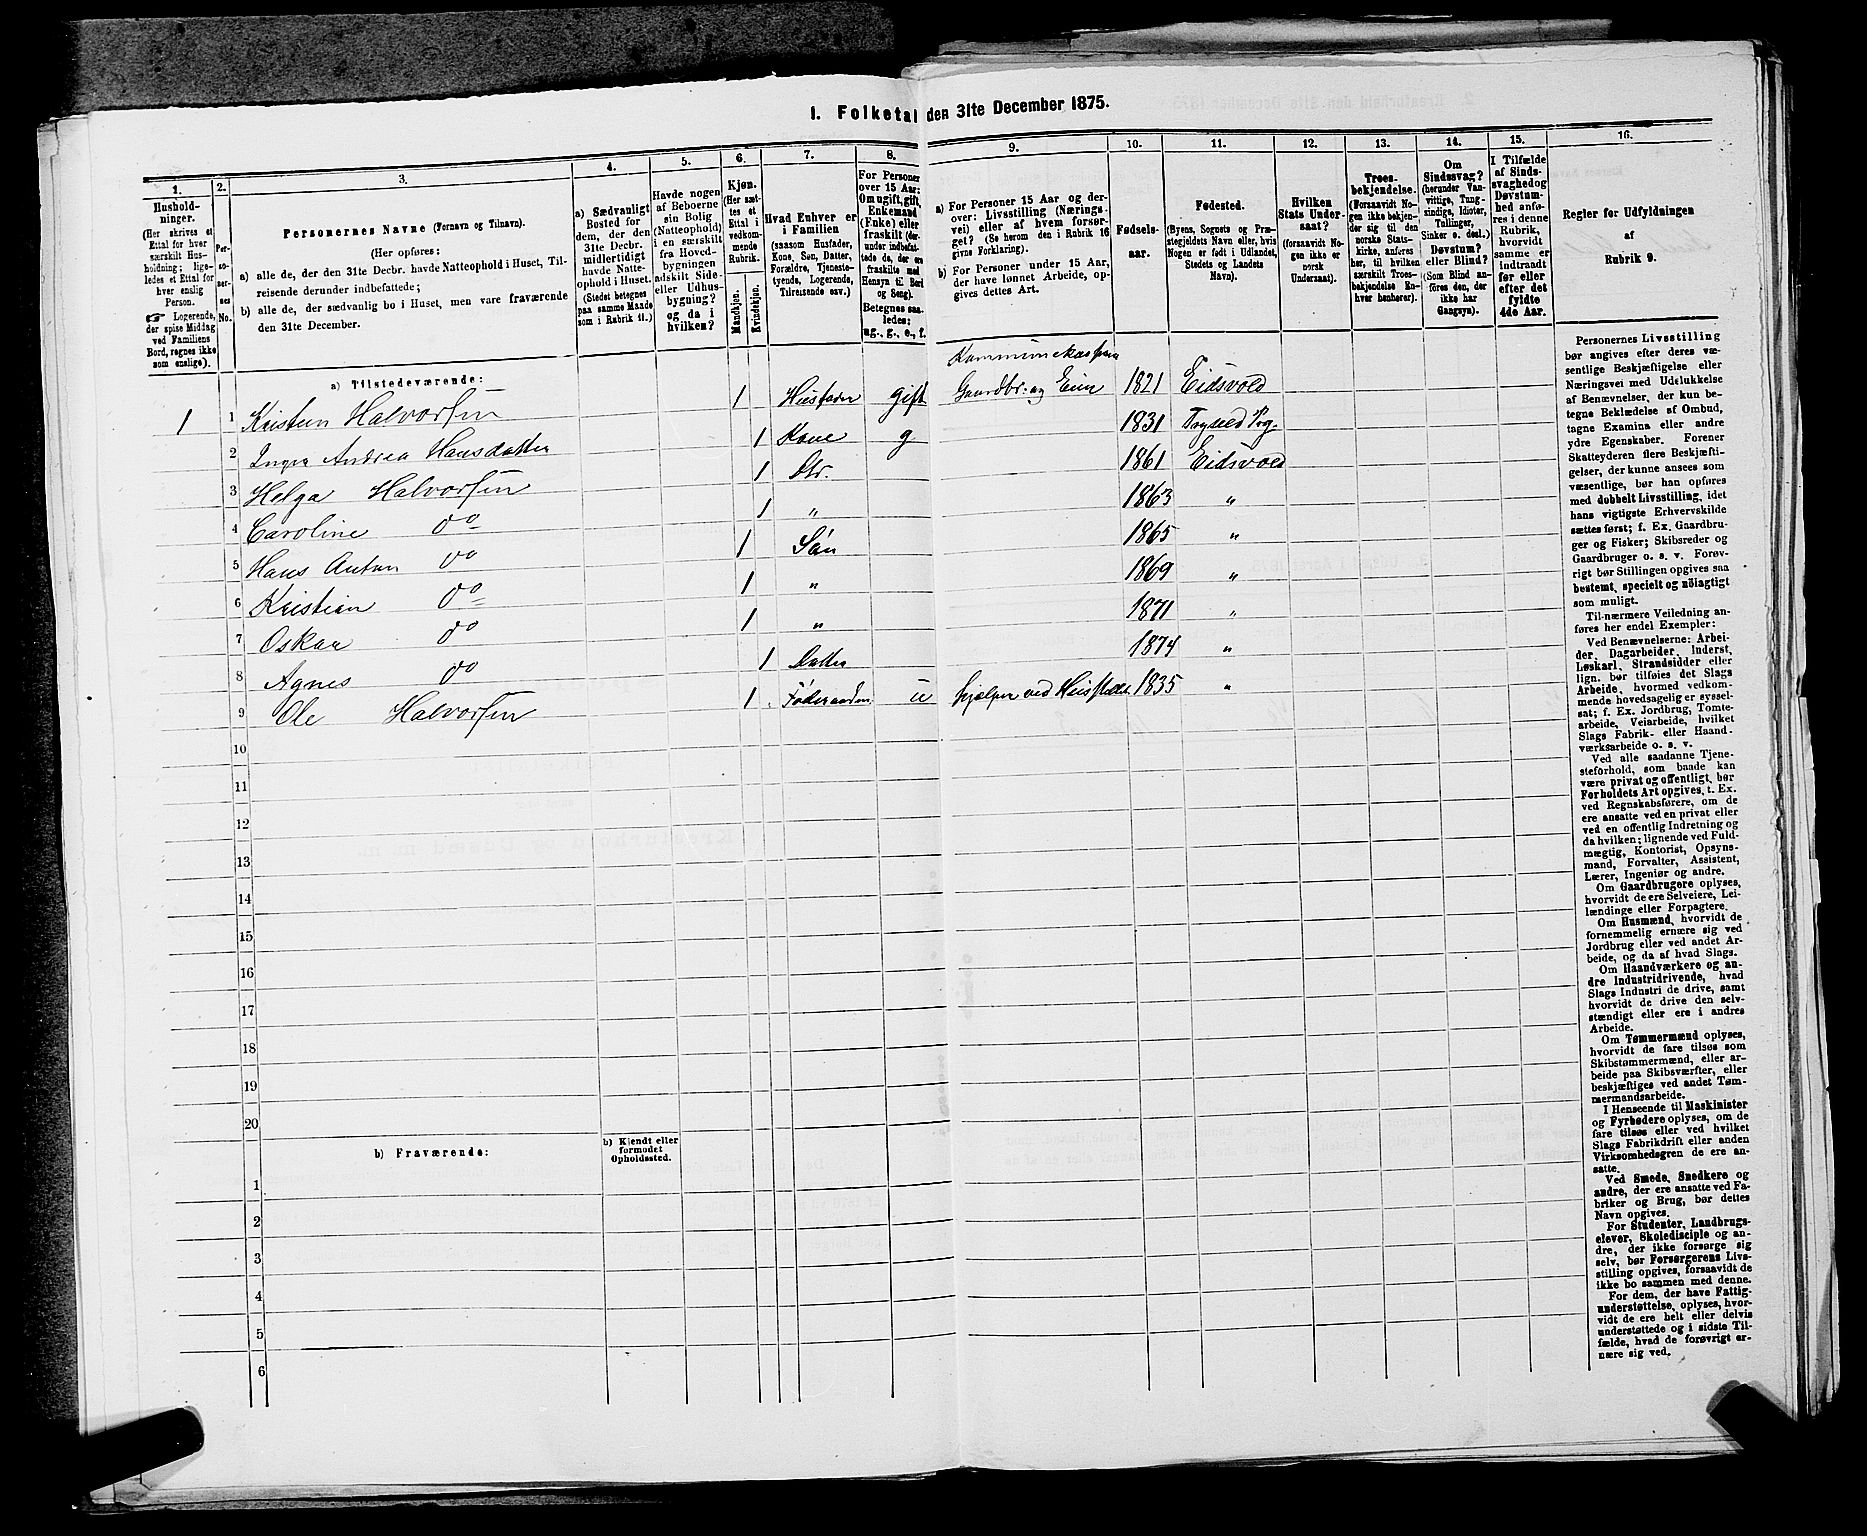 I. Folketal den 31te December 1875.
1. 2. 3. 4. 5. 6. 7. 8. 9. 10. 11. 12. 13. 14. 15. 16.
Husholdninger.
(Her skrives et
Ettal for hver
særskilt Husholdning; ligeledes et Ettal for
hver enslig
Person.
☞ Logerende,
der spise Middag
ved Familiens
Bord, regnes ikke
som enslige).
Personernes No.
Personernes Navne (Fornavn og Tilnavn).
(Her opføres:
a) alle de, der den 31te Decbr. havde Natteophold i Huset, Tilreisende derunder indbefattede;
b) alle de, der sædvanlig bo i Huset, men vare fraværende
den 31te December.
a) Sædvanligt
Bosted for
dem, der den
31te Decbr.
midlertidigt
havde Natteophold i Huset.
(Stedet betegnes
paa samme Maade
som i Rubrik 11.)
Havde nogen
af Beboerne
sin Bolig
(Natteophold)
i en særskilt
fra Hovedbygningen
adskilt Side-
eller Udhusbygning?
og da i
hvilken?
Kjøn.
(Her sættes et
Ettal i
vedkommende
Rubrik.
Mandkjøn.
Kvindekjøn.
Hvad Enhver er
i Familien
(saasom Husfader,
Kone, Søn, Datter,
Forældre, Tjenestetyende, Logerende,
Tilreisende osv.)
For Personer
over 15 Aar:
Om ugift, gift,
Enkemand
(Enke) eller
fraskilt (derunder indbefattede de, der ere
fraskilte med
Hensyn til Bord
og Seng).
Betegnes saaledes:
ug., g., e., f.
a) For Personer 15 Aar og derover: Livsstilling (Næringsvei) eller af hvem forsørget? (Se herom den i Rubrik 16
givne Forklaring).
b) For Personer under 15 Aar,
der have lønnet Arbeide, opgives dettes Art.
Fødselsaar.
Fødested.
(Byens, Sognets og Præstegjeldets Navn eller, hvis
Nogen er født i Udlandet,
Stedets og Landets
Navn).
Hvilken
Stats Undersaat?
(forsaavidt Nogen ikke er
norsk
Undersaat).
Troesbekjendelse.
(Forsaavidt Nogen ikke bekjender sig til den
norske Statskirke, anføres
her, til hvilken
særskilt Troesbekjendelse Enhver henhører).
Om
Sindssvag?
(herunder Vanvittige, Tungsindige, Idioter,
Tullinger,
Sinker o. desl.)
Døvstum?
eller Blind?
(Som Blind anføres den, der
ikke har
Gangsyn).
I Tilfælde
af Sindssvaghed og
Døvstumhed anføres i denne
Rubrik,
hvorvidt
samme er
indtraadt
før eller
efter det
fyldte
4de Aar.
Regler for Udfyldningen
af
Rubrik 9.
a) Tilstedeværende:
1 1 Kristen Halvorsen 1 Husfader gift Gaardbr. og Eier 1821 Eidsvold
2 Ingea Andrea Hansdatter 1 Kone g 1831 Trysild Prg.
3 Helga Halvorsen 1 Dtr. 1861 Eidsvold
4 Caroline do 1 " 1863 "
5 Hans Anton do 1 Søn 1865 "
6 Kristian do 1 " 1869 "
7 Oskar do 1 " 1871 "
8 Agnes do 1 Datter 1874 "
9 Ole Halvorsen 1 u hjælper ved 1835 "
10
11
12
13
14
15
16
17
18
19
20
b) Fraværende:
b) Kjendt eller
formodet
Opholdssted.
1
2
3
4
5
6
Personernes Livsstilling
bør angives efter deres væsentlige Beskjæftigelse eller
Næringsvei med Udelukkelse
af Benævnelser, der kun betegne Beklædelse af Ombud,
tagne Examina eller andre
ydre Egenskaber. Forener
Skatteyderen flere Beskjæftigelser, der kunne ansees som
væsentlige, bør han opføres
med dobbelt Livsstilling, idet
hans vigtigste Erhvervskilde
sættes først; f. Ex. Gaardbruger og Fisker; Skibsreder og
Gaardbruger o. s. v. Forøvrigt bør Stillingen opgives saa
bestemt, specielt og nöiagtigt
som muligt.
Til nærmere Veiledning anføres her endel Exempler:
Ved Benævnelserne: Arbeider, Dagarbeider, Inderst,
Løskarl, Strandsidder eller
lign. bør tilføies det Slags
Arbeide, hvormed vedkommende hovedsagelig er sysselsat; f. Ex. Jordbrug, Tomtearbeide, Veiarbeide, hvilket
Slags Fabrik- eller Haandværksarbeide o. s. v.
Ved alle saadanne Tjenesteforhold, som baade kan
være privat og offentligt, bør
Forholdets Art opgives, t. Ex.
ved Regnskabsførere, om de
ere ansatte ved en privat eller
ved en offentlig Indretning og
da hvilken; lignende ved Fuldmægtig, Kontorist, Opsynsmand, Forvalter, Assistent,
Lærer, Ingeniør og andre.
Om Gaardbrugere oplyses,
hvorvidt de ere Selveiere, Leilændinge eller Forpagtere.
Om Husmænd, hvorvidt de
fornemmelig ernære sig ved
Jordbrug eller ved andet Arbeide, og da af hvad Slags.
Om Haandværkere og andre Industridrivende, hvad
Slags Industri de drive, samt
hvorvidt de drive den selvstændigt eller ere i andres
Arbeide.
Om Tømmermænd oplyses,
hvorvidt de fare tilsøs som
Skibstømmermænd, eller arbeide paa Skibsværfter, eller
beskjæftiges ved andet Tømmermandsarbeide.
I Henseende til Maskinister
og Fyrbødere oplyses, om de
fare tilsøs eller ved hvilket
Slags Fabrikdrift eller anden
Virksomhedsgren de ere ansatte.
Ved Smede, Snedkere og
andre, der ere ansatte ved Fabriker og Brug, bør dettes
Navn opgives.
For Studenter, Landbrugselever, Skoledisciple og andre, der ikke forsørge sig
selv, bør Forsørgerens Livsstilling opgives, forsaavidt de
ikke bo sammen med denne.
For dem, der have Fattigunderstøttelse, oplyses, hvorvidt de ere helt eller delvis
understøttede og i sidste Tilfælde, hvad de forøvrigt ernære sig ved.